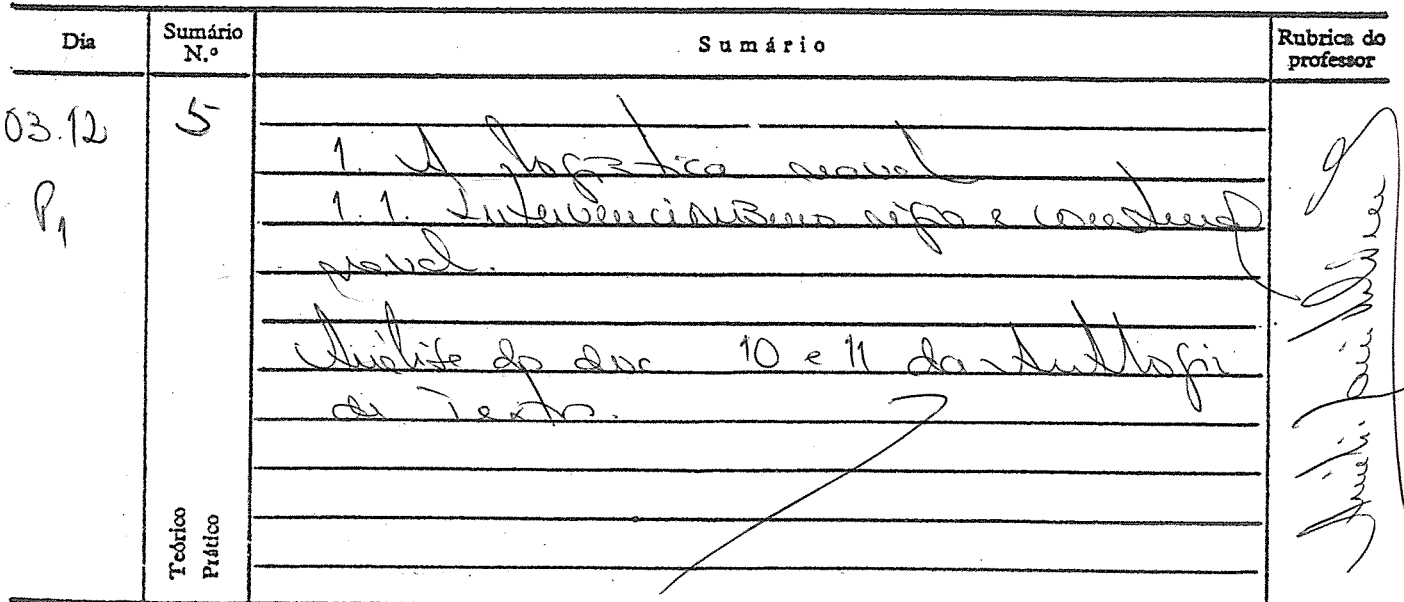 Dia
Sumário N.º
Sumário
Rubrica do professor
03.12
P1
5
1. A logística naval
1.1. Intervencionismo régio e construção
naval.
Análise do doc. 10 e 11 da Antologia
de Textos.
Teórico
Prático